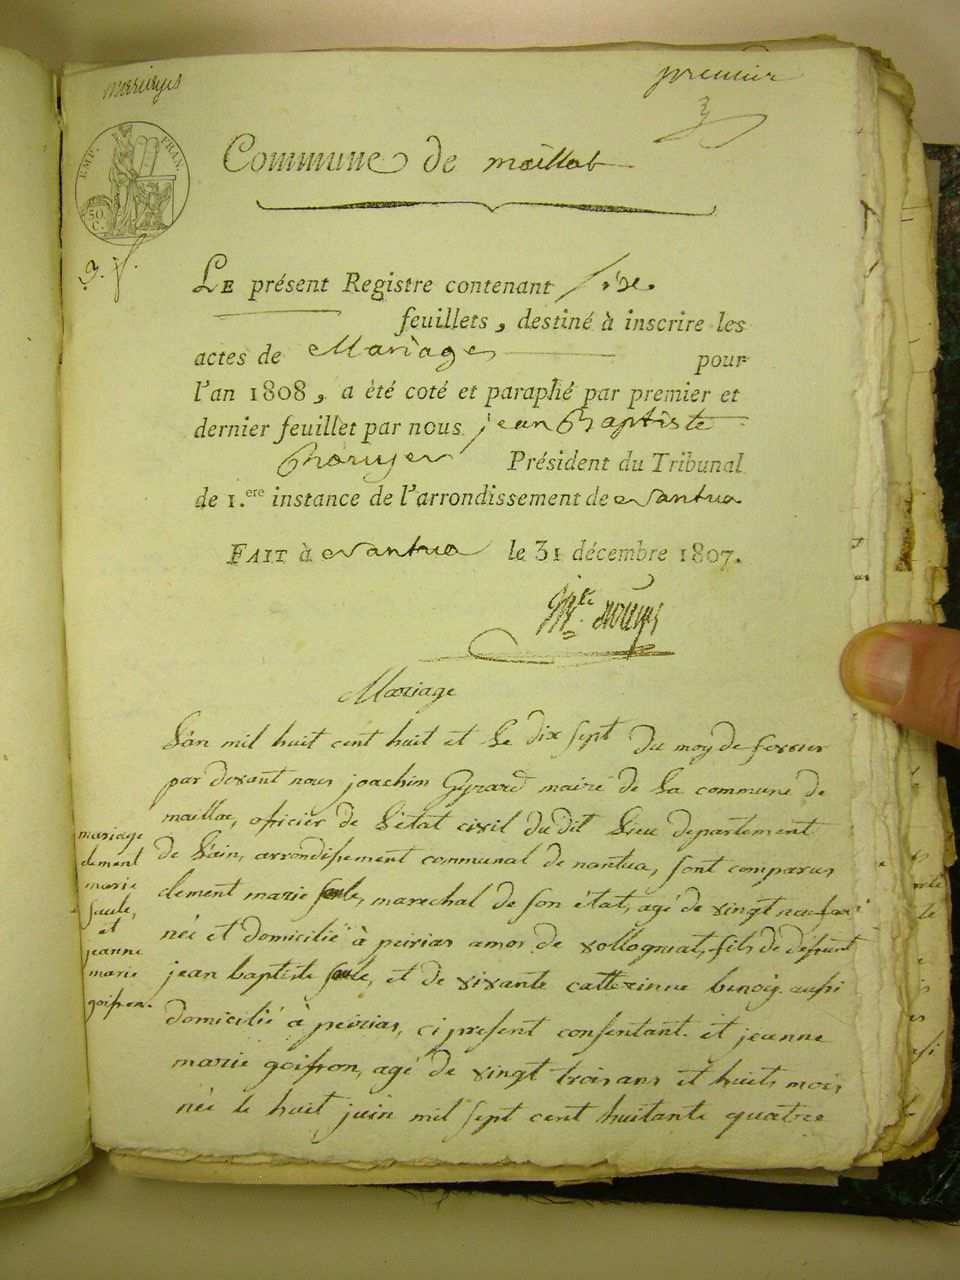 Marriages
premier
EMP. FRAN.
50 C.
Commune de maillat
3. f.
LE présent Registre contenant six
feuillets, destiné à inscrire les
actes de Mariages pour
l'an 1808, a été coté et paraphé par premier et
dernier feuillet par nous jean Baptiste
Président du Tribunal
de 1.ere instance de l'arrondissement de nantua
FAIT à nantua le 31 décembre 1807.
Mariage
L'an mil huit cent huit et Le dix sept du moy de fevrier
par devant nous joachim Gyrard maire de La commune de
maillac, officier de L'etat civil du dit Lieu departement
de L'ain, arrondissement communal de nantua, sont comparus
clement marie saule, marechal de son état, agé de vingt neuf an
née et domicilié à peirias amos de vollognat, fils de défunt
jean baptiste saule, et de vivante catterinne benoiy aussi
domicilié à peirias, ci present consentant. et jeanne
marie goifron, agé de vingt trois ans et huits mois
née le huit juin mil sept cent huitante quatre
mariage
clement
marie
saule,
et
jeanne
marie
goifron.